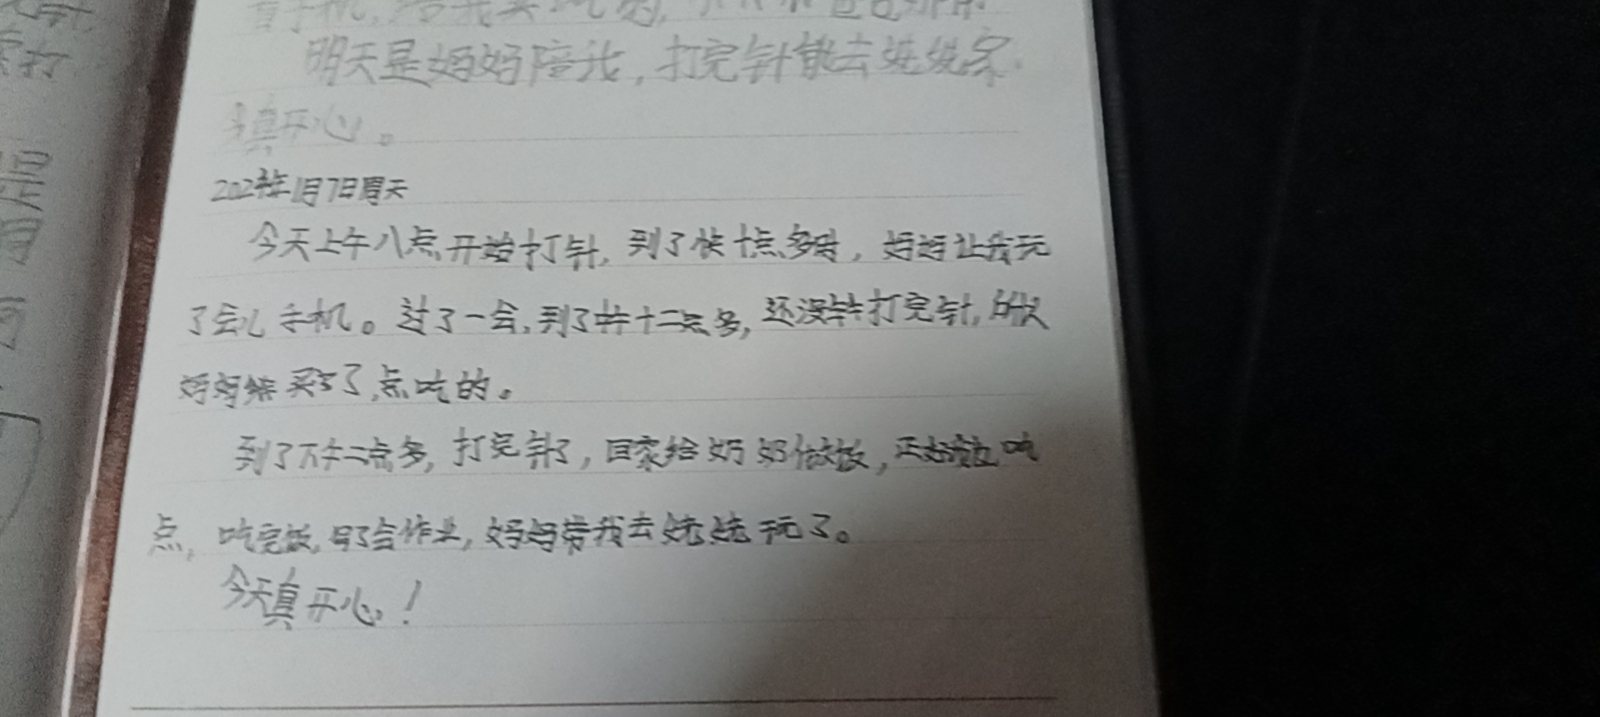 看手机,给我买吃
明天是妈妈陪我,打完针就去姚姚家
真开心。
2024年1月7日周天
今天上午八点开始打针,到了快十点多时,妈妈让我玩
了会儿手机。过了一会,到了十二点多,还没打完针,所以
妈妈给买了点吃的。
到了下午二点多,打完针了,回家给奶奶做饭,正好吃
点,吃完饭,写了会作业,妈妈带我去姚姚玩了。
今天真开心!